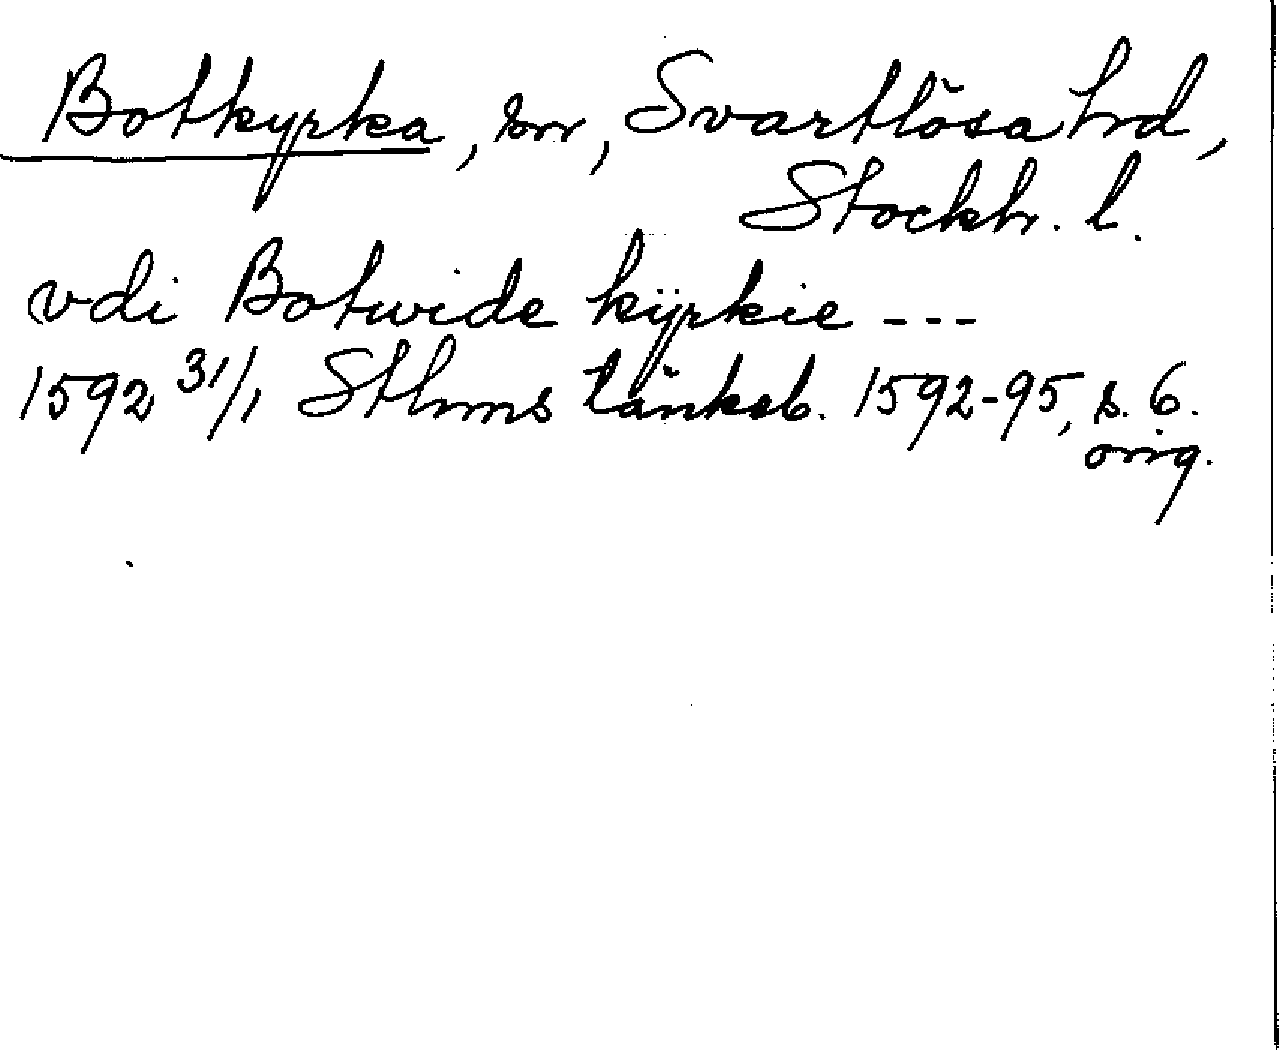 Botkyrka, sn, Svartlösa hrd,
Stockh. l.
vdi Botwide kÿrkie ---
1592 31/1 Sthms tänkeb. 1592-95, s. 6.
orig.